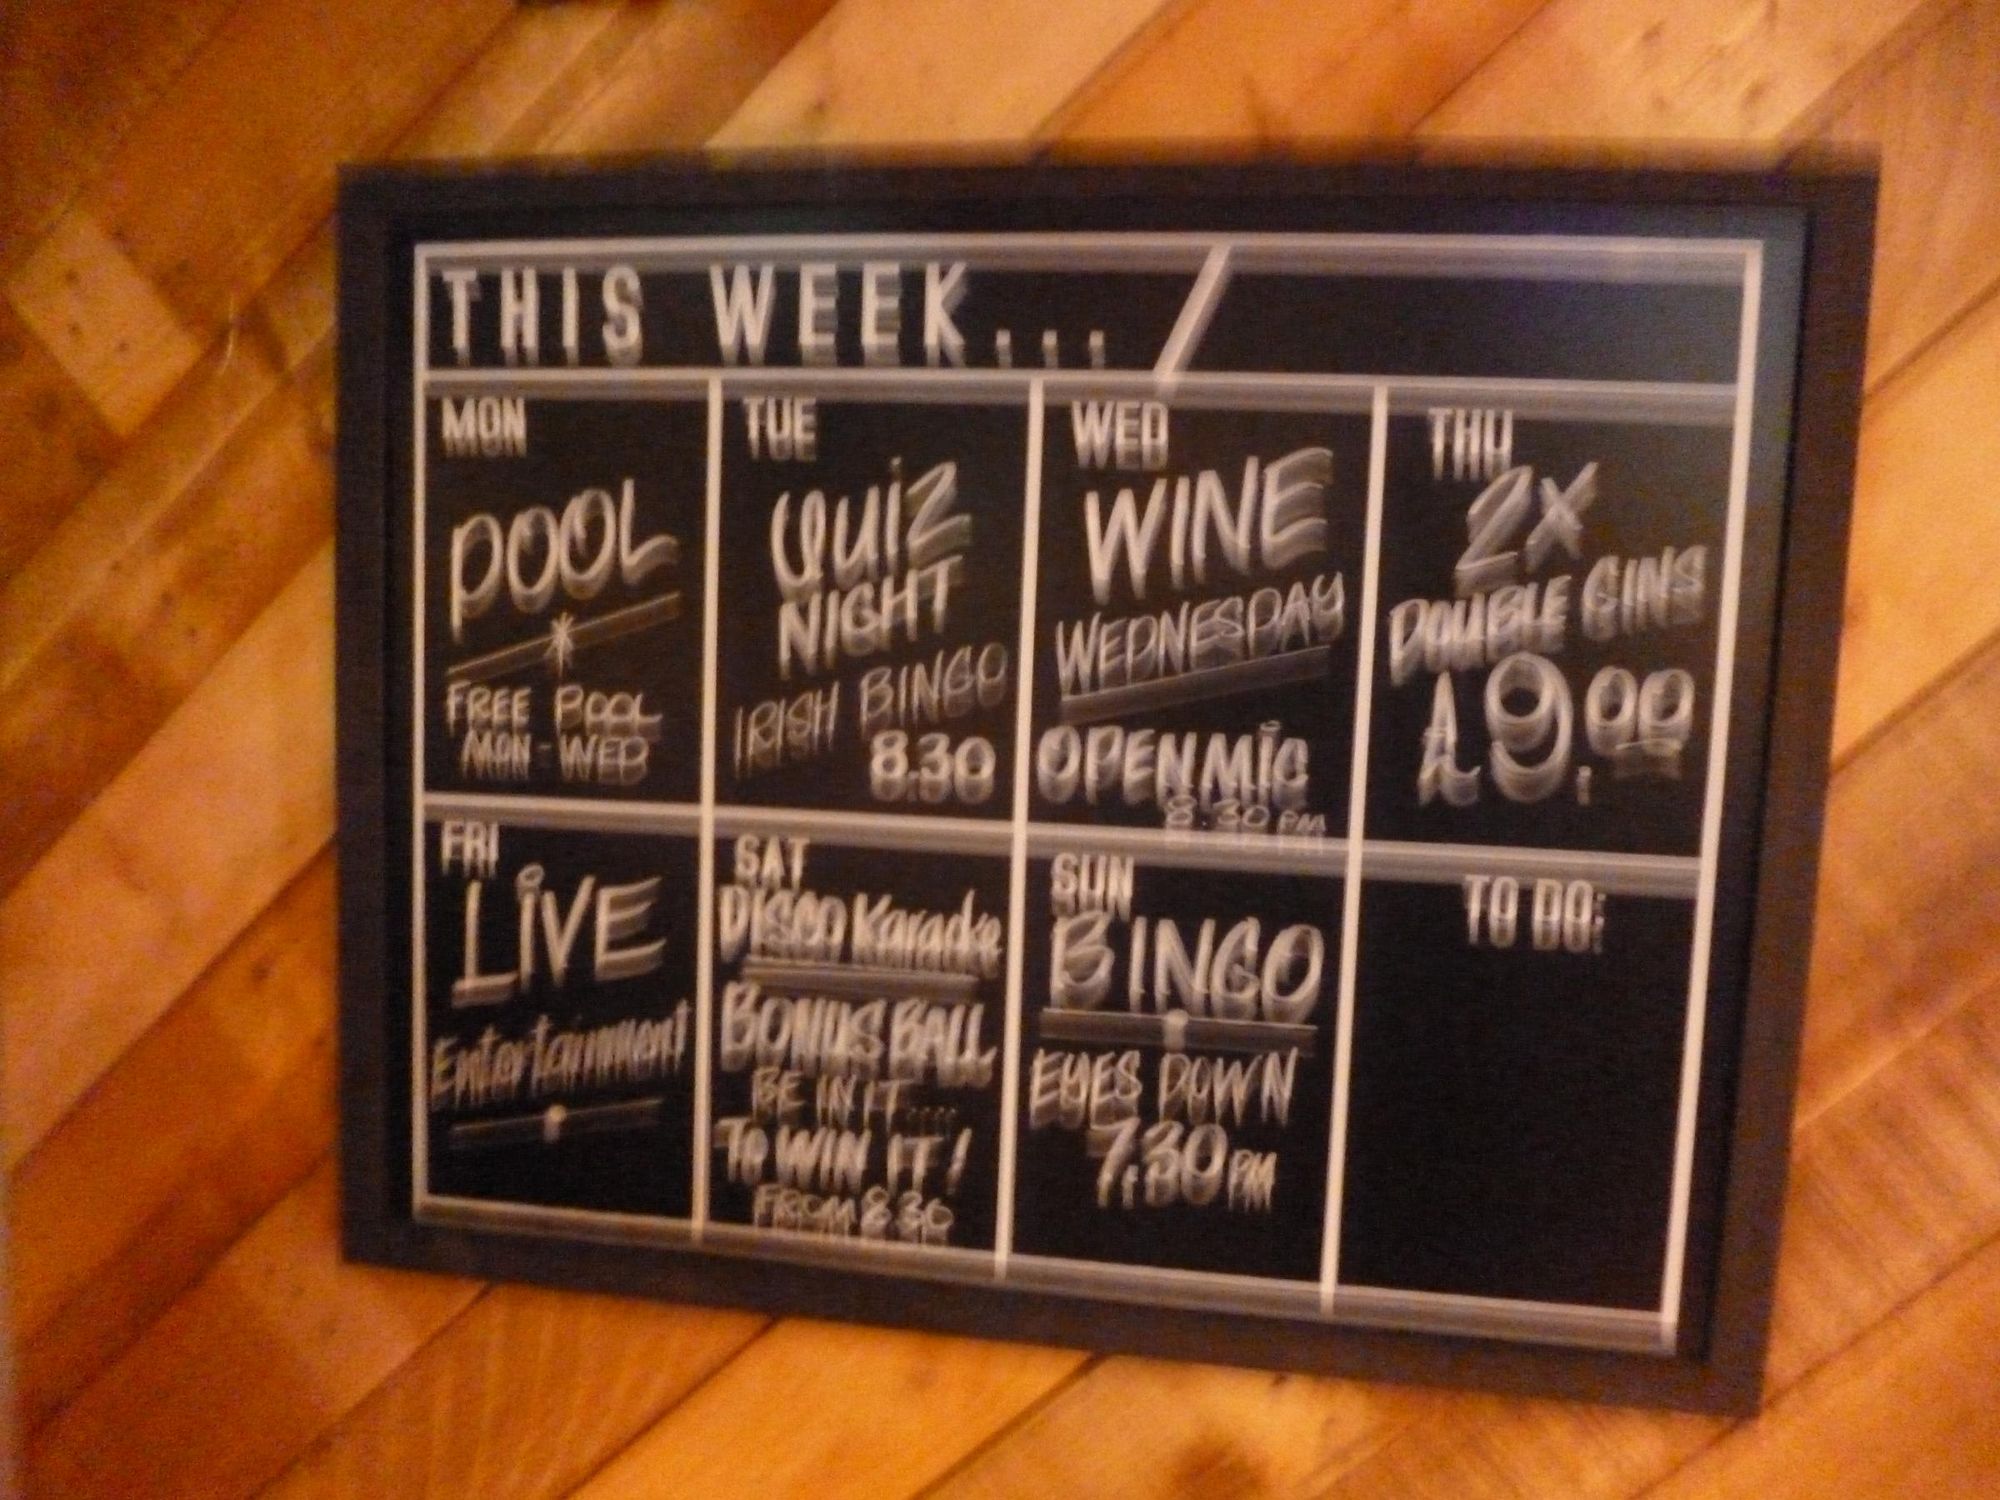 THIS WEEK... /
MON
POOL
FREE POOL
MON-WED
TUE
QUiZ
NIGHT
IRISH BINGO
8.30
WED
WINE
WEDNESDAY
OPEN MiC
8.30 PM
THU
2X
DOUBLE GINS
£9.00
FRI
LiVE
Entertainment
SAT
DISCO Karaoke
BONUS BALL
BE IN IT....
TO WIN IT!
FROM 8.30
SUN
BINGO
EYES DOWN
7.30 PM
TO DO: